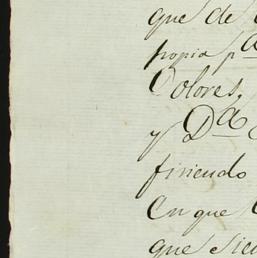 que de
propia pa
Dolores,
y Da
finiendo
En que
que Sie